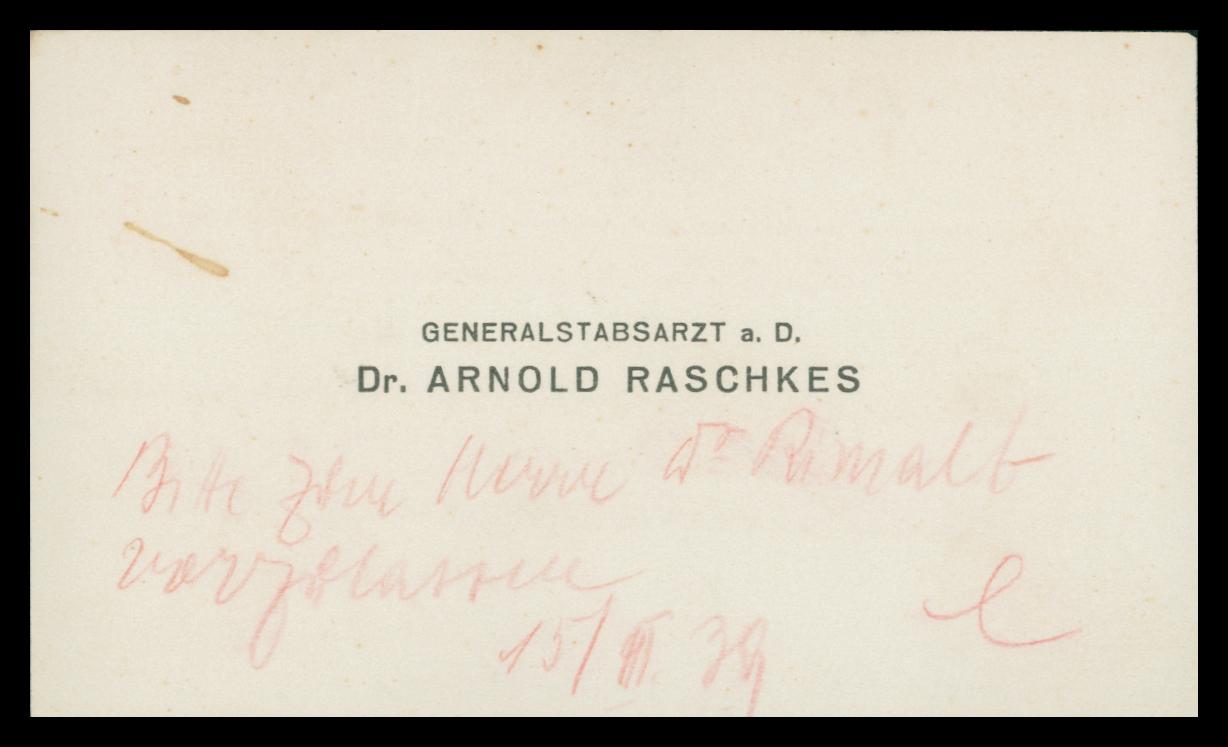 GENERALSTABSARZT a. D.
Dr. ARNOLD RASCHKES
Bitte Herrn Dr
vorzulassen
15/III. 39